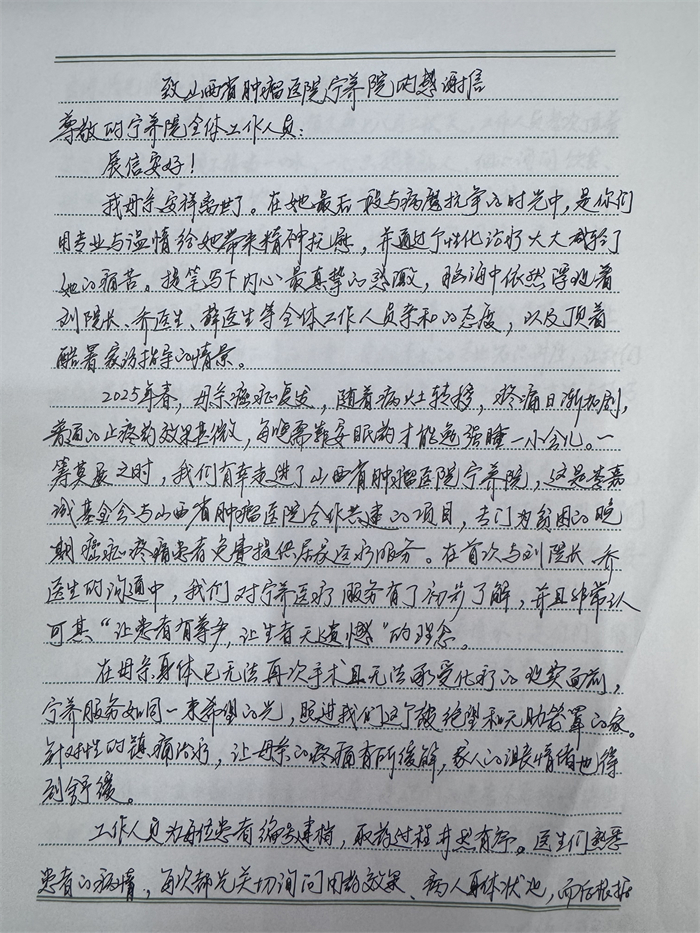 致山西省肿瘤医院宁养院的感谢信
尊敬的宁养院全体工作人员：
展信安好！
我母亲安祥离世了。在她最后一段与病魔抗争的时光中，是你们
用专业与温情给她带来精神抚慰，并通过个性化治疗大大减轻了
她的痛苦。提笔写下内心最真挚的感激，脑海中依然浮现着
刘院长、乔医生、薛医生等全体工作人员亲和的态度，以及顶着
酷暑家访指导的情景。
2025年春，母亲癌症复发，随着病灶转移，疼痛日渐加剧，
普通的止疼药效果甚微，每晚需靠安眠药才能勉强睡一小会儿。一
筹莫展之时，我们有幸走进了山西省肿瘤医院宁养院，这是李嘉
诚基金会与山西省肿瘤医院合作共建的项目，专门为贫困的晚
期癌症疼痛患者免费提供居家医疗服务。在首次与刘院长、乔
医生的沟通中，我们对宁养医疗服务有了初步了解，并且非常认
可其“让患者有尊严，让生者无遗憾”的理念。
在母亲身体已无法再次手术且无法承受化疗的现实面前，
宁养服务如同一束希望的光，照进我们这个被绝望和无助笼罩的家。
针对性的镇痛治疗，让母亲的疼痛有所缓解，家人的沮丧情绪也得
到舒缓。
工作人员为每位患者编号建档，取药过程井然有序。医生们熟悉
患者的病情，每次都先关切询问用药效果、病人身体状况，而后根据